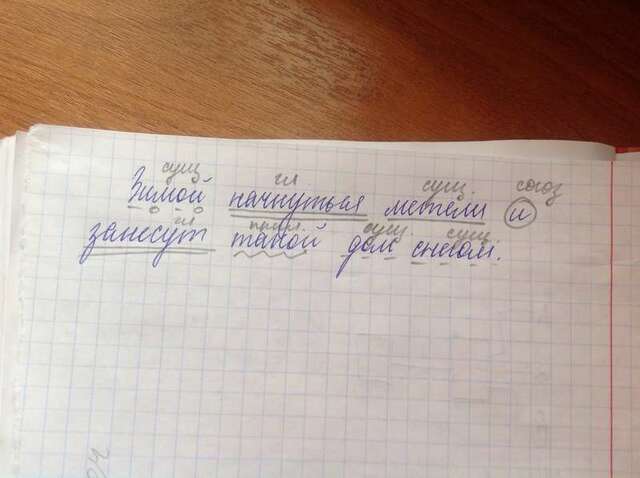 сущ. гл. сущ. союз
Зимой начнуться метели и
гл. прил. сущ. сущ.
занесут такой дом снегом.
04